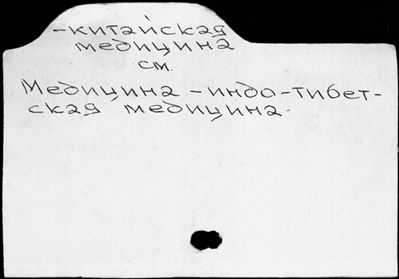 -китайская
медицина
см.
Медицина - индо-тибет-
ская медицина.